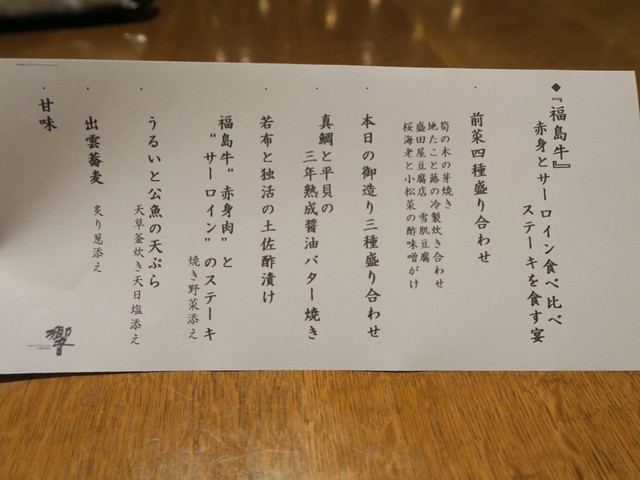 ◆『福島牛』
赤身とサーロイン食べ比べ
ステーキを食す宴
・前菜四種盛り合わせ
筍の木の芽焼き
地たこと蕗の冷製炊き合わせ
盛田屋豆腐店 雪肌豆腐
桜海老と小松菜の酢味噌がけ
・本日の御造り三種盛り合わせ
・真鯛と平貝の
三年熟成醤油バター焼き
・若布と独活の土佐酢漬け
・福島牛“赤身肉”と
“サーロイン”のステーキ
焼き野菜添え
・うるいと公魚の天ぷら
天草釜炊き天日塩添え
・出雲蕎麦
炙り葱添え
・甘味
響